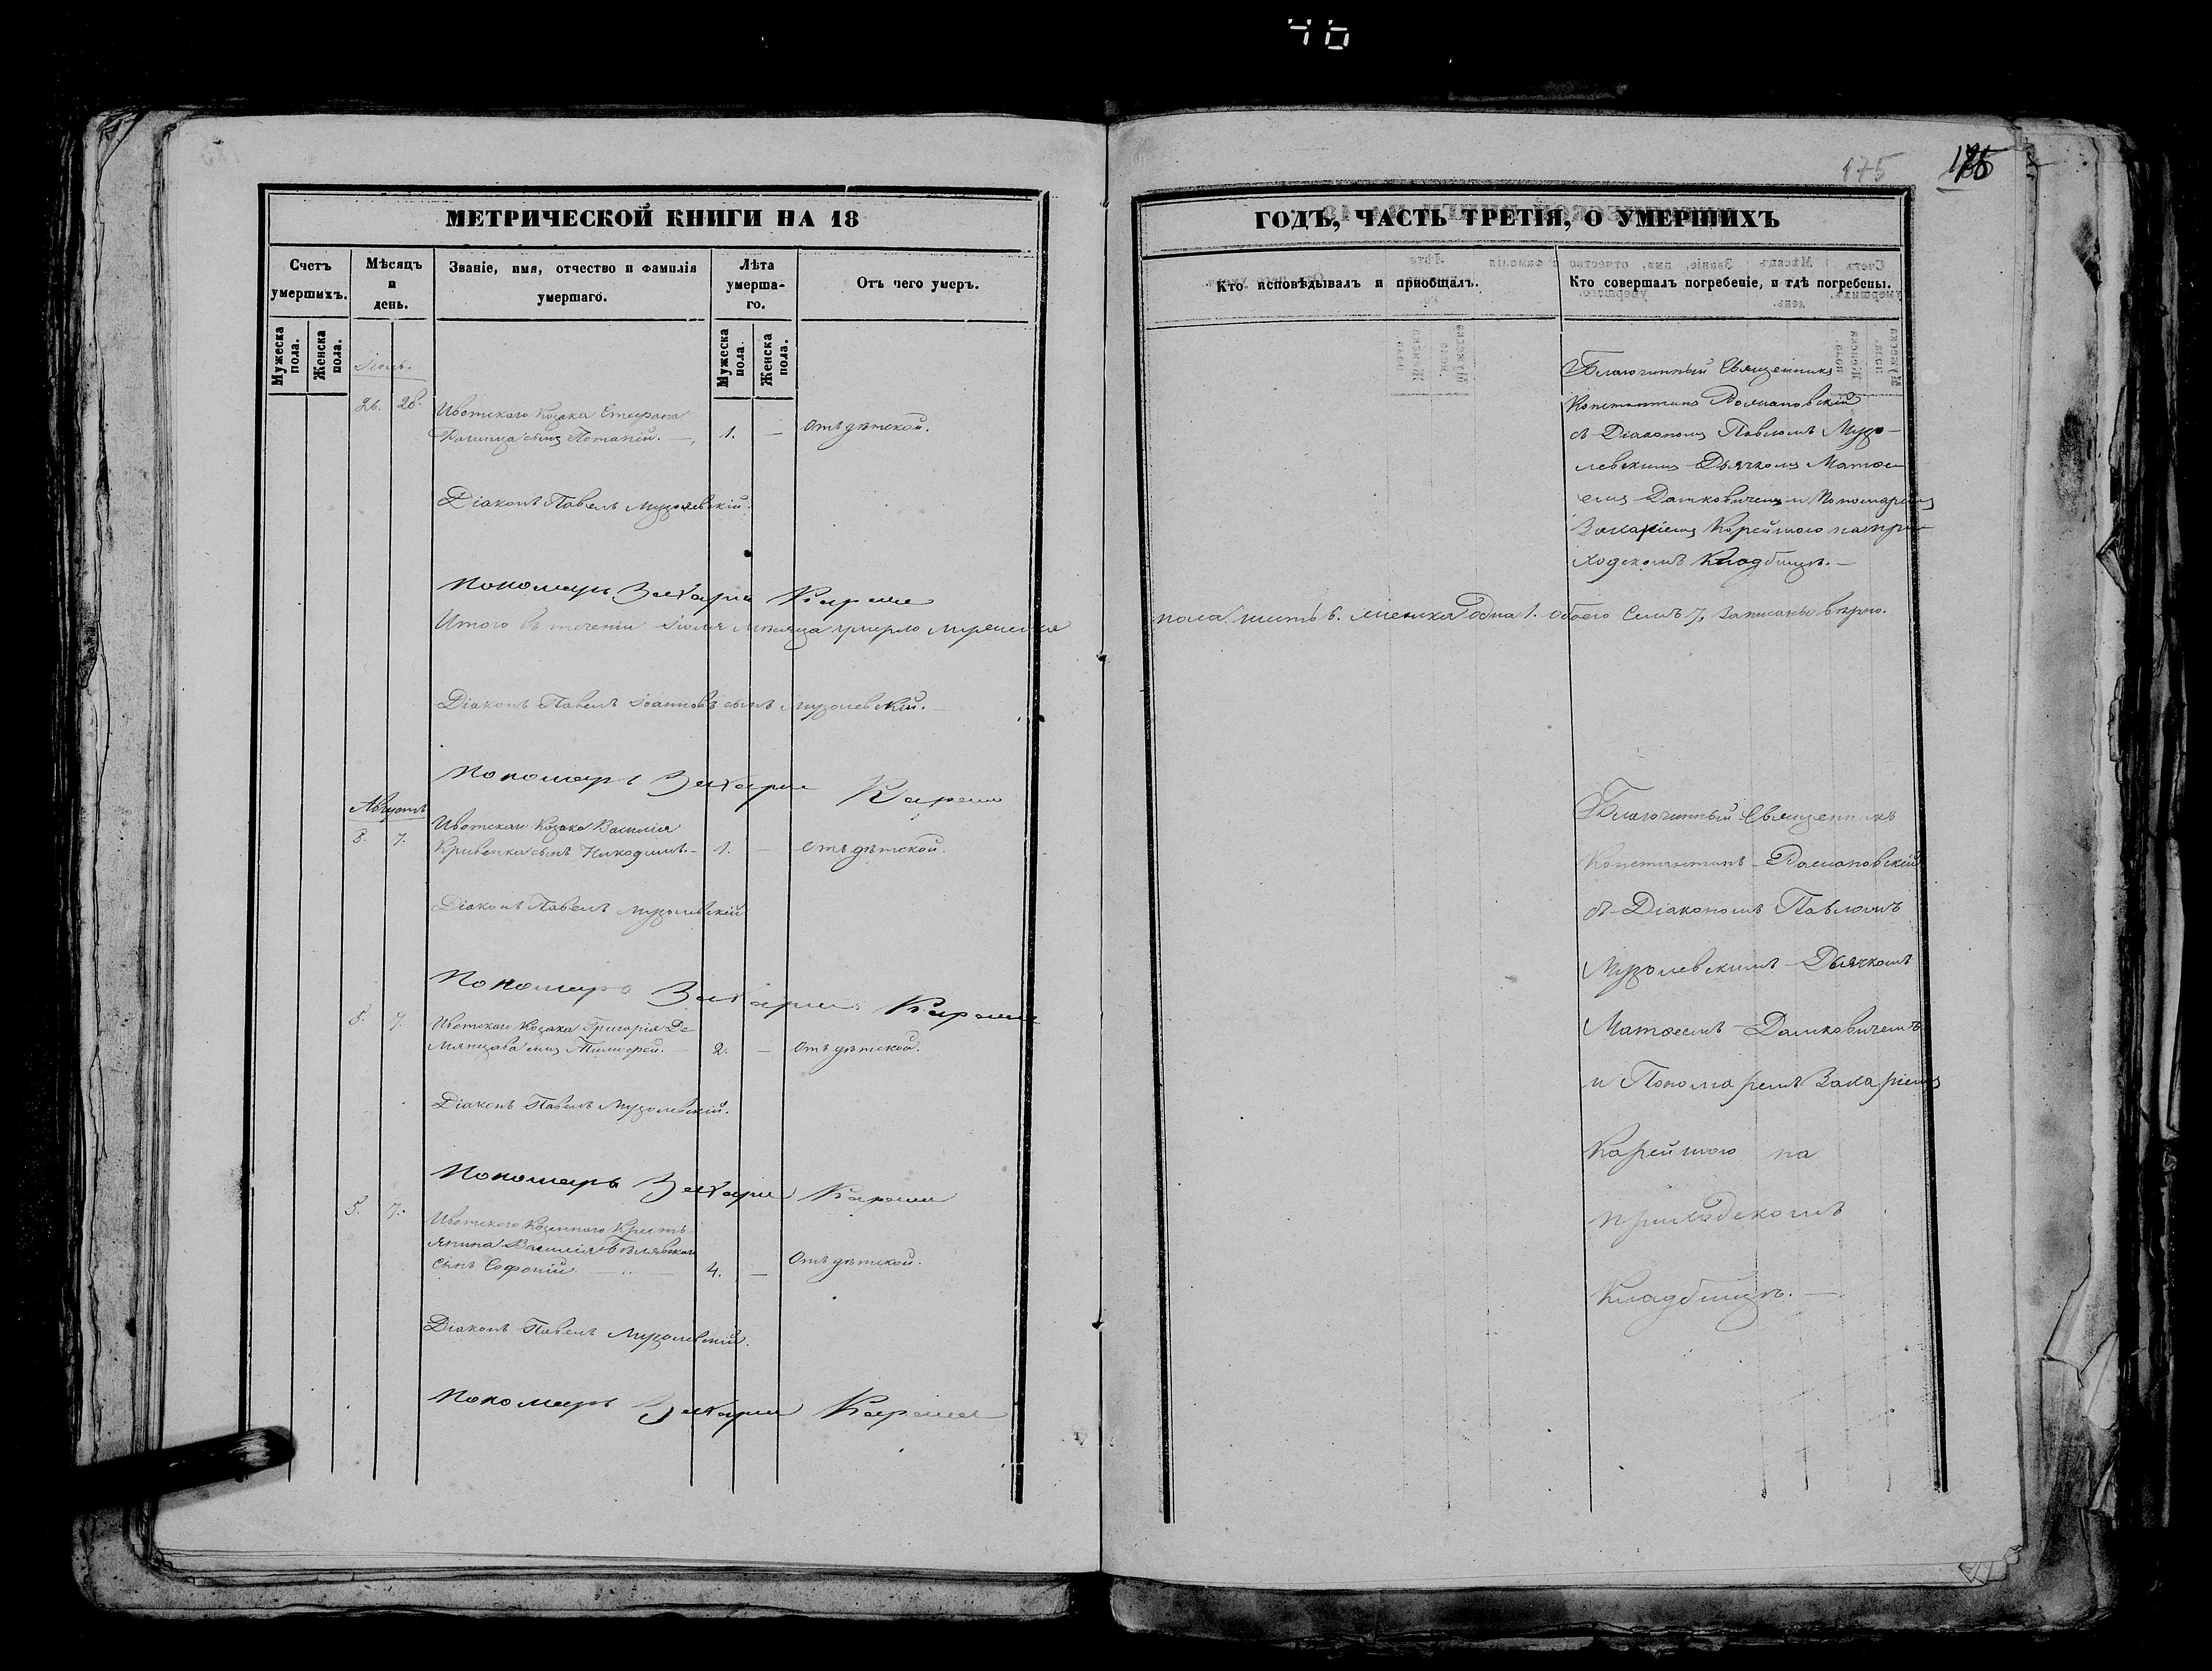 175
МЕТРИЧЕСКОЙ КНИГИ НА 18
Счетъ умершихъ.
Мѣсяцъ и день.
Званіе, имя, отчество и фамилія умершаго.
Лѣта умерша-го.
Отъ чего умеръ.
Мужеска пола.
Женска пола.
Мужеска пола.
Женска пола.
Іюль.
26. 28. Ивотскаго Козака Стефана
сынъ Потапій. — 1. — Отъ дѣтской.
Діаконъ Павелъ Музалевскій.
Пономарь Захарій
Итого въ теченіи Іюля Мѣсяца умерло мужеска
Діаконъ Павелъ Іоанновъ сынъ Музалевскій.
Пономарь Захарій
Августъ
5. 7. Ивотскаго Козака Василія
Кривенка сынъ Никодимъ. — 1. — Отъ дѣтской.
Діаконъ Павелъ Музалевскій
Пономарь Захарій
5. 7. Ивотскаго Козака Григорія Де-
сынъ Тимофей. — 2. — Отъ дѣтской.
Діаконъ Павелъ Музалевскій.
Пономарь Захарій
5. 7. Ивотскаго Казеннаго Кресть-
янина Василія
сынъ Софоній. — 4. — Отъ дѣтской.
Діаконъ Павелъ Музалевскій.
Пономарь Захарій
ГОДЪ, ЧАСТЬ ТРЕТІЯ, О УМЕРШИХЪ
Кто исповѣдывалъ и пріобщалъ.
Кто совершалъ погребеніе, и гдѣ погребены.
Благочинный Священникъ
Константинъ
съ Діакономъ Павломъ Музо-
левскимъ Дьячкомъ Матѳе-
емъ Дашковичемъ и Пономаремъ
Захаріемъ Корейшою на при-
ходскомъ Кладбищѣ. —
пола шесть 6. женска одна 1. обоего Семь 7, записаны вѣрно.
Благочинный Священникъ
Константинъ
съ Діакономъ Павломъ
Музолевскимъ Дьячкомъ
Матѳеемъ Дашковичемъ
и Пономаремъ Захаріемъ
Карейшою на
приходскомъ
Кладбищѣ. —